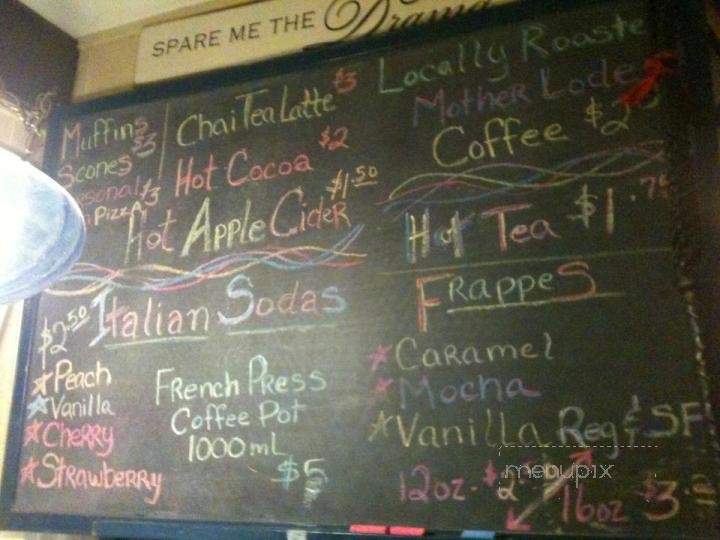 SPARE ME THE Drama
Muffins
Scones $3
Personal $3
Pizza
Chai Tea Latte $3
Hot Cocoa $2
Hot Apple Cider $1.50
Locally Roaste
Mother Lode
Coffee $2
Hot Tea $1.75
$2.50 Italian Sodas
Peach
Vanilla
Cherry
Strawberry
French Press
Coffee Pot
1000 mL
$5
Frappes
Caramel
Mocha
Vanilla Reg & SF
12oz. $2
16oz $3.
menupix